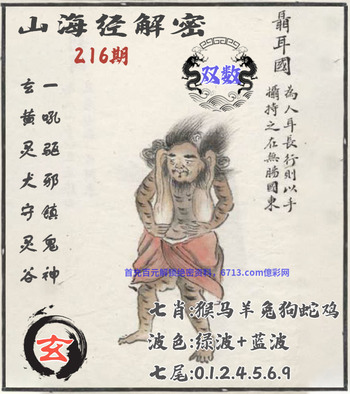 山海经解密
216期
双数
聶耳國
為人耳長行則以手
攝持之在無腸國東
一吼驅邪鎮鬼神
玄黃灵犬守灵谷
首充百元解锁绝密资料，6713.com億彩网
七肖:猴马羊兔狗蛇鸡
波色:绿波+蓝波
玄
七尾:0.1.2.4.5.6.9